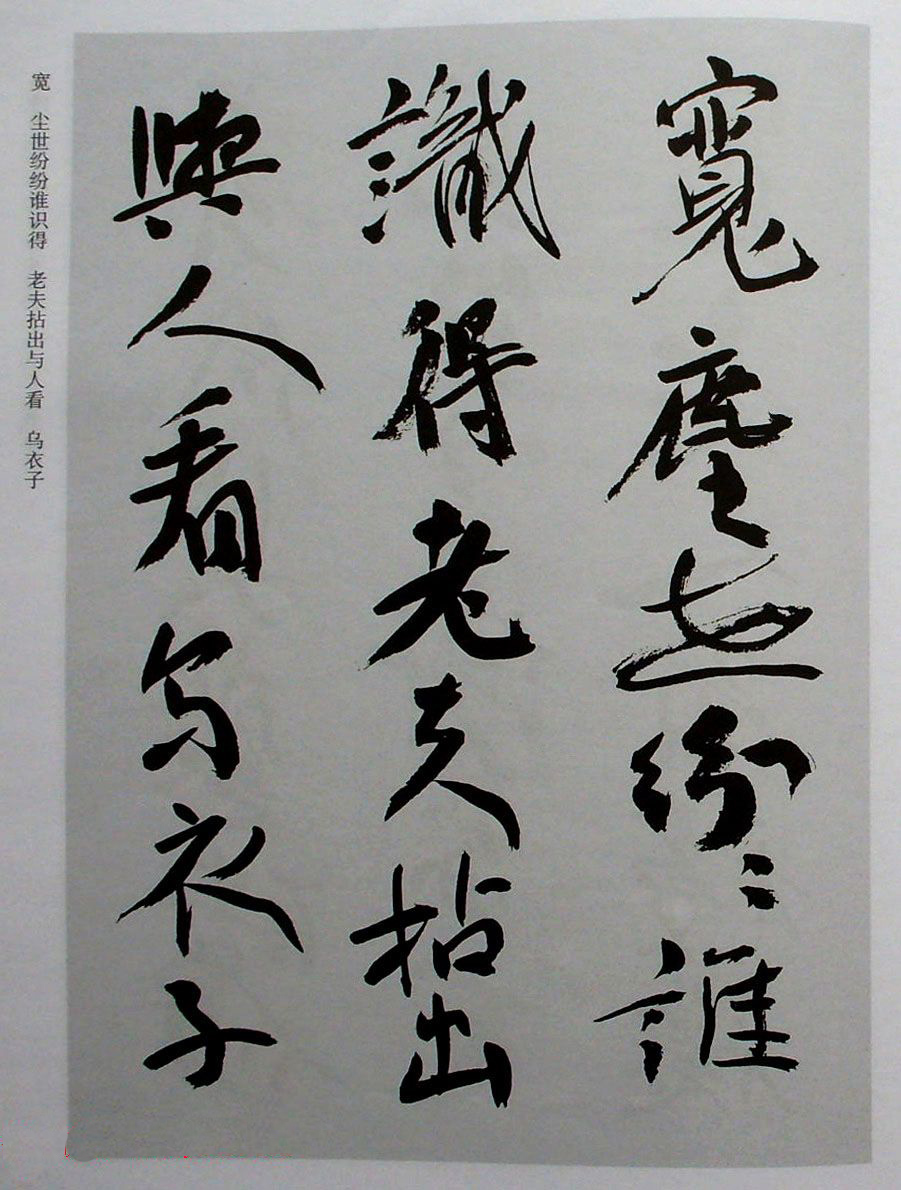 寬塵世紛〻誰
識得老夫拈出
與人看烏衣子
宽 尘世纷纷谁识得 老夫拈出与人看 乌衣子